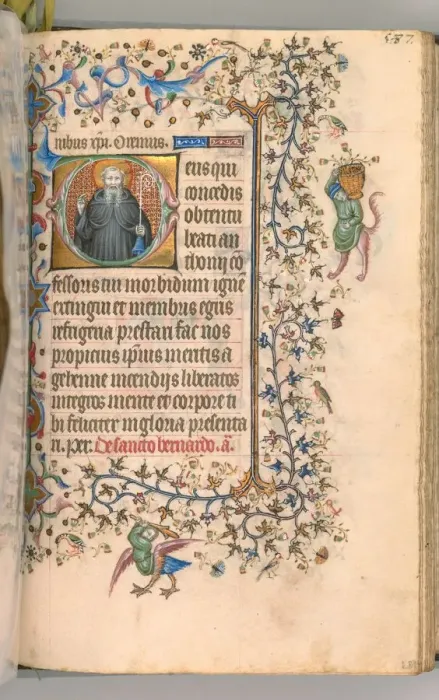 nibus xpi. Oremus.
eus qui
concedis
obtentu
beati an
thonij cō
fessoris tui morbidum ignē
extingui et membris egris
refrigeria prestari fac nos
propicius ipius meritis a
gehenne incendijs liberatos
integros mente et corpore ti
bi feliciter in gloria presenta
ri. Per. De sancto bernardo. a.